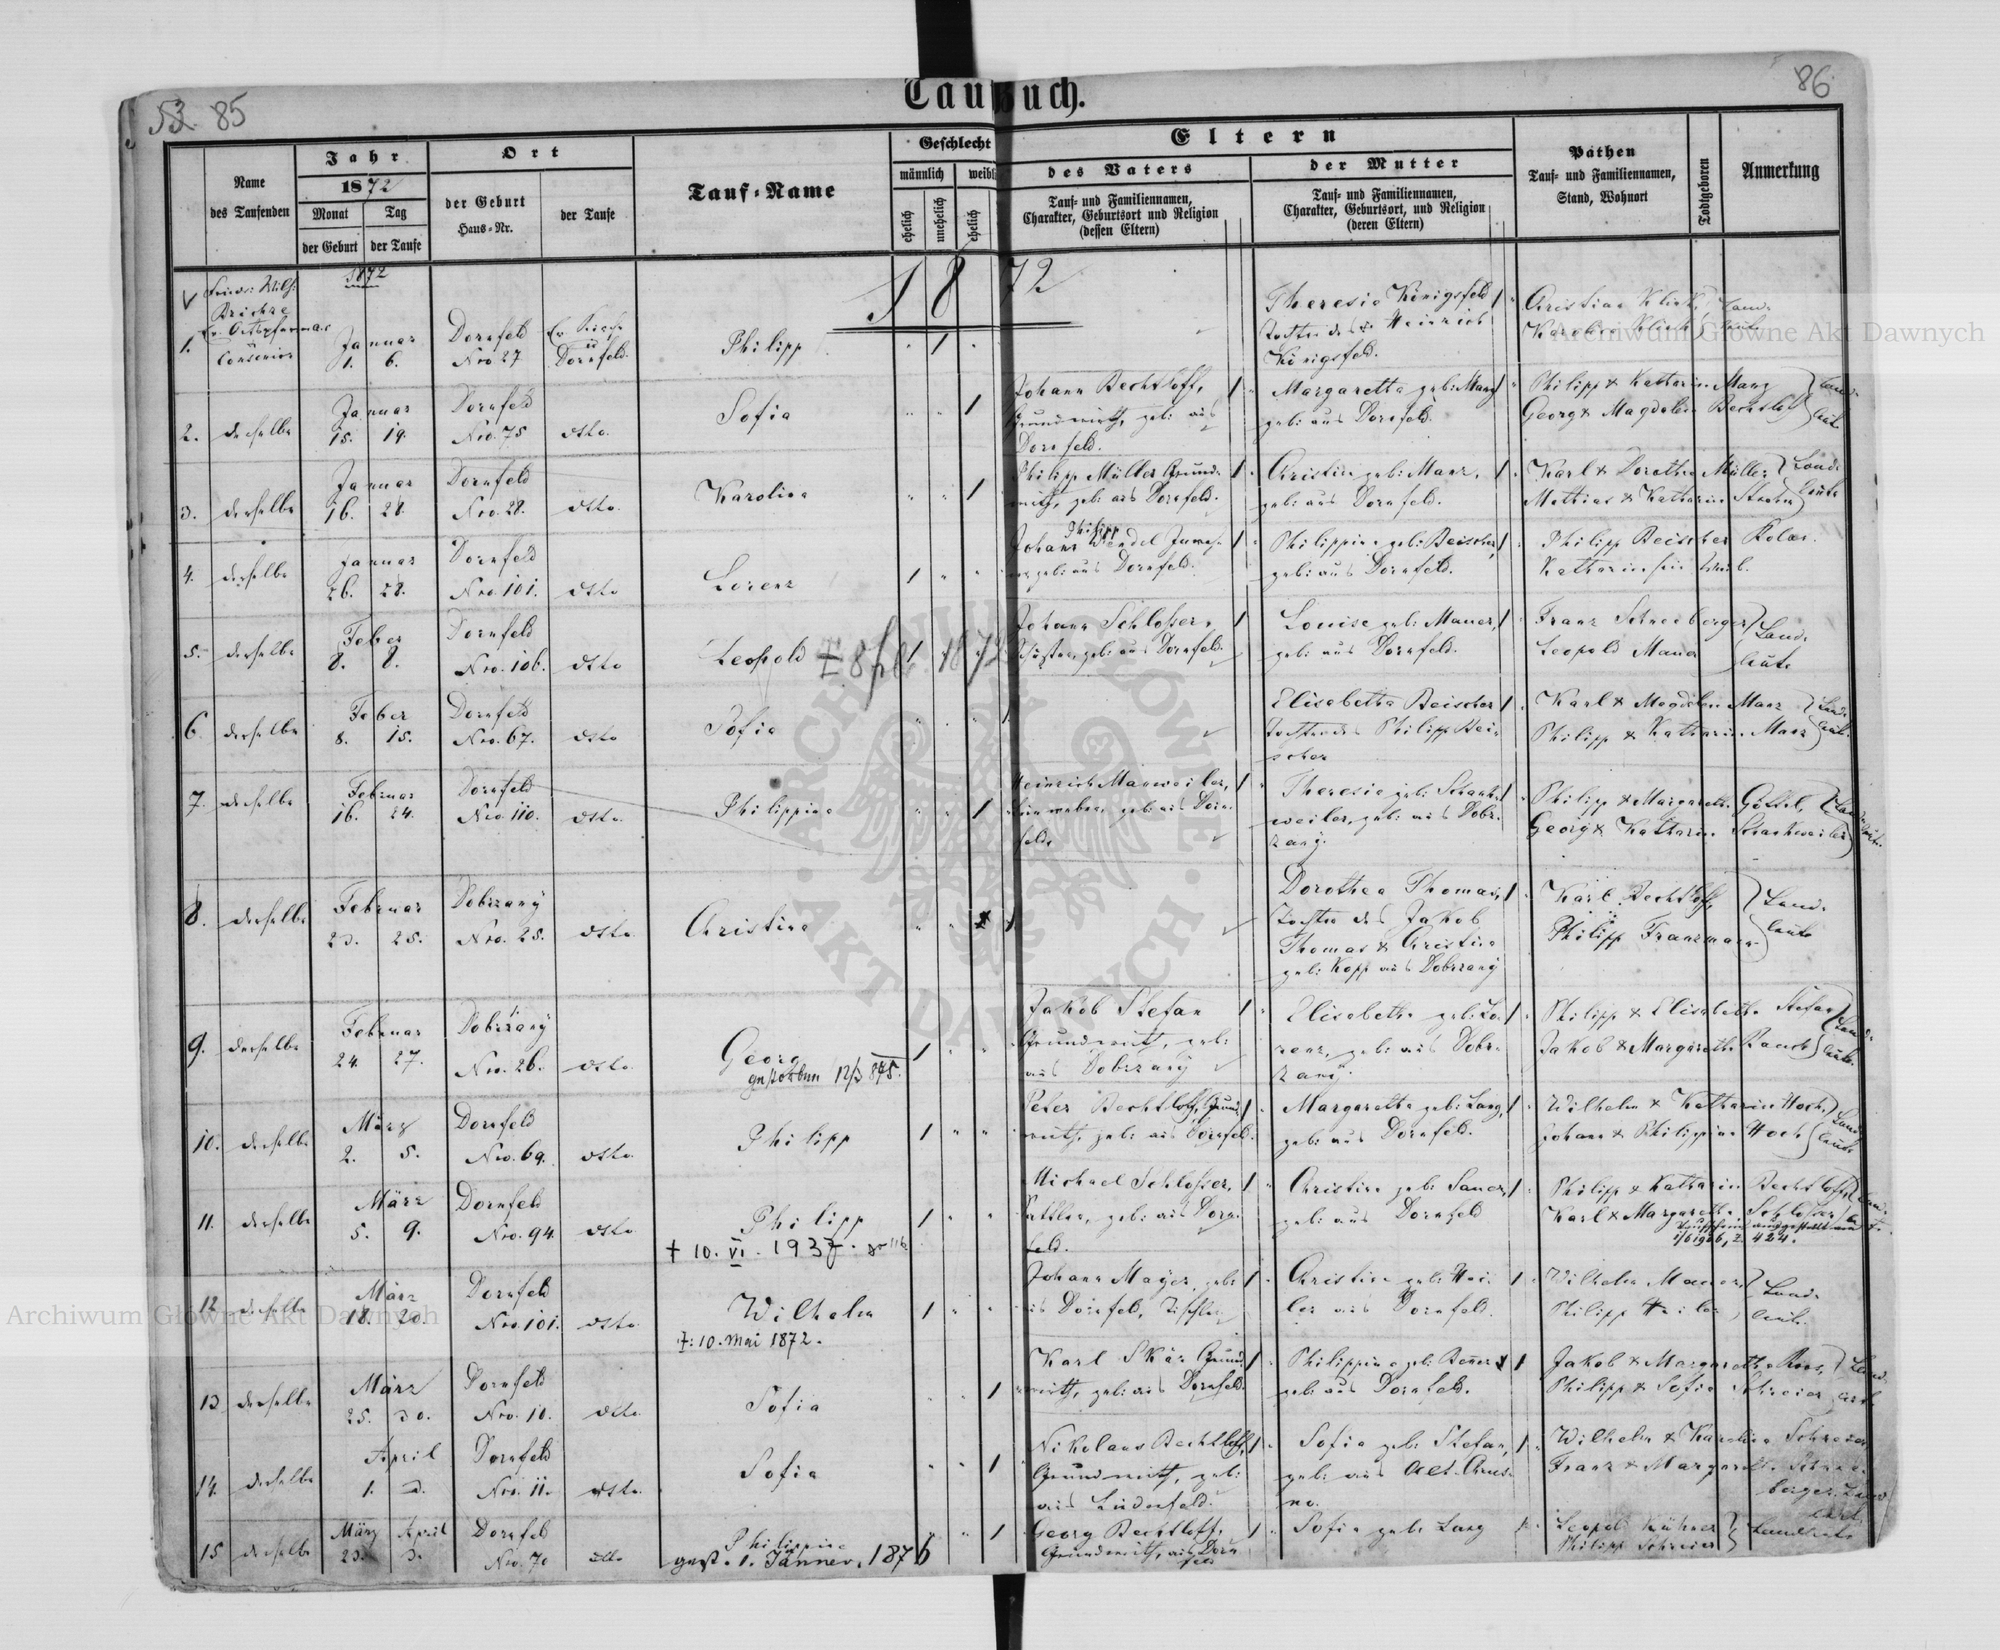 53. 85
Taufbuch.
86
Name
des Taufenden
Jahr
1872
Monat
Tag
der Geburt
der Taufe
Ort
der Geburt
Haus-Nr.
der Taufe
Tauf-Name
Geschlecht
männlich
weibl
ehelich
unehelich
ehelich
Eltern
des Vaters
Tauf- und Familiennamen,
Charakter, Geburtsort und Religion
(dessen Eltern)
der Mutter
Tauf- und Familiennamen,
Charakter, Geburtsort, und Religion
(deren Eltern)
Pathen
Tauf- und Familiennamen,
Stand, Wohnort
Todtgeboren
Anmerkung
1872
1872
1.
Januar
1. 6.
Dornfeld
Nro. 27
Dornfeld.
Philipp
Theresia Königsfeld
Tochter des Heinrich
Königsfeld.
2. derselbe
Januar
15. 19.
Dornfeld
Nro. 75
dtto.
Sofia
Johann Bechtloff,
Grundwirth, geb: aus
Dornfeld.
Margaretha geb: Manz
geb: aus Dornfeld.
Philipp & Katharin Manz
Georg & Magdalen Bechtloff
Landleute
3. derselbe
Januar
16. 28.
Dornfeld
Nro. 28.
dtto.
Karolina
Philipp Müller Grundwirth, geb: aus Dornfeld.
Christine geb: Manz,
geb: aus Dornfeld.
Karl & Dorothea Müller
Mathias & Katharin
Landleute
4. derselbe
Januar
26. 28.
Dornfeld
Nro. 101.
dtto
Lorenz
Philipp
Johann Wendel
geb: aus Dornfeld.
Philippine geb: Beischer,
geb: aus Dornfeld.
Philipp Beischer
Katharin sein Weib.
5. derselbe
Feber
8. 8.
Dornfeld
Nro. 106.
dtto
Leopold
Johann Schlosser,
geb: aus Dornfeld.
Louise geb: Mauer,
geb: aus Dornfeld.
Franz Schneeberger
Leopold Mauer
Landleute
6. derselbe
Feber
8. 15.
Dornfeld
Nro. 67.
dtto
Sofia
Elisabetha Beischer
Tochter des Philipp Beischer
Karl & Magdalen Manz
Philipp & Katharin Manz
Landleute
7. derselbe
Februar
16. 24.
Dornfeld
Nro. 110.
dtto.
Philippine
Heinrich Manweiler,
geb: aus Dornfeld.
Theresia geb: Schankweiler, geb: aus Dobrzany.
Philipp & Margaretha
Georg & Katharin Schankweiler
8. derselbe
Februar
23. 25.
Dobrzany
Nro. 25.
dtto.
Christine
Dorothea Thomas,
Tochter des Jakob
Thomas & Christine
geb: Kopp aus Dobrzany
Karl Bechtloff,
Philipp Franzmann
Landleute
9. derselbe
Februar
24. 27.
Dobrzany
Nro. 26.
dtto.
Georg
gestorben 12/3 875.
Jakob Stefan
Grundwirth, geb:
aus Dobrzany
Elisabetha geb: Lorenz, geb: aus Dobrzany.
Philipp & Elisabetha Stefan
Jakob & Margaretha
Landleute
10. derselbe
März
2. 5.
Dornfeld
Nro. 69.
dtto.
Philipp
Peter Bechtloff, Grundwirth, geb: aus Dornfeld.
Margaretha geb: Lang,
geb: aus Dornfeld.
Wilhelm & Katharin Hoch,
Johann & Philippine Hoch
Landleute
11. derselbe
März
5. 9.
Dornfeld
Nro. 94.
dtto
Philipp
† 10. VI. 1937.
Michael Schlosser,
Sattler, geb: aus Dornfeld.
Christine geb: Sauer,
geb: aus Dornfeld
Philipp & Katharin Bechtloff,
Karl & Margaretha Schlosser
Taufschein ausgestellt am
1/6 1926, Z. 424.
12 derselbe
März
18. 20.
Dornfeld
Nro. 101.
dtto.
Wilhelm
†: 10. Mai 1872.
Johann Mayer, geb:
aus Dornfeld, Tischler
Christine geb: Heiler aus Dornfeld.
Wilhelm Mauer
Philipp Heiler
Landleute
13 derselbe
März
25. 30.
Dornfeld
Nro. 10.
dtto.
Sofia
Karl Skär Grundwirth, geb: aus Dornfeld.
Philippine geb:
geb: aus Dornfeld.
Jakob & Margaretha Roos,
Philipp & Sofia Schreier
14. derselbe
April
1. 2.
Dornfeld
Nro. 11.
dtto.
Sofia
Nikolaus Bechtloff,
Grundwirth, geb:
aus Lindenfeld.
Sofia geb: Stefan,
geb: aus Alt-Chrusno.
Wilhelm & Karolina Schreier
Franz & Margareth Schneeberger
15 derselbe
März April
23. 3.
Dornfeld
Nro. 70
dtto
Philippine
gest. 1. Jänner. 1876
Georg Bechtloff,
Grundwirth, aus Dornfeld
Sofia geb: Lang
Leopold Kühner
Philipp Schreier
Landleute
Archiwum Główne Akt Dawnych
Archiwum Główne Akt Dawnych
ARCHIWUM GŁÓWNE
AKT DAWNYCH